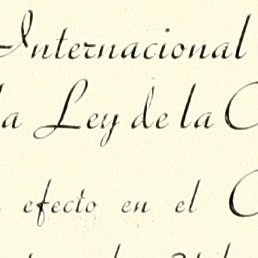 Internacional
la Ley de la C
efecto en el C